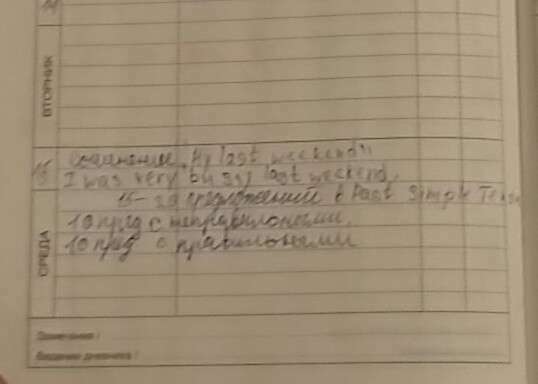 14
ВТОРНИК
15 Сочинение „My last weekend“
I was very busy last weekend.
15- предложений в Past Simple Tense
10 пред с неправильными.
10 пред с правильными
СРЕДА
Замечания:
Ведение дневника: